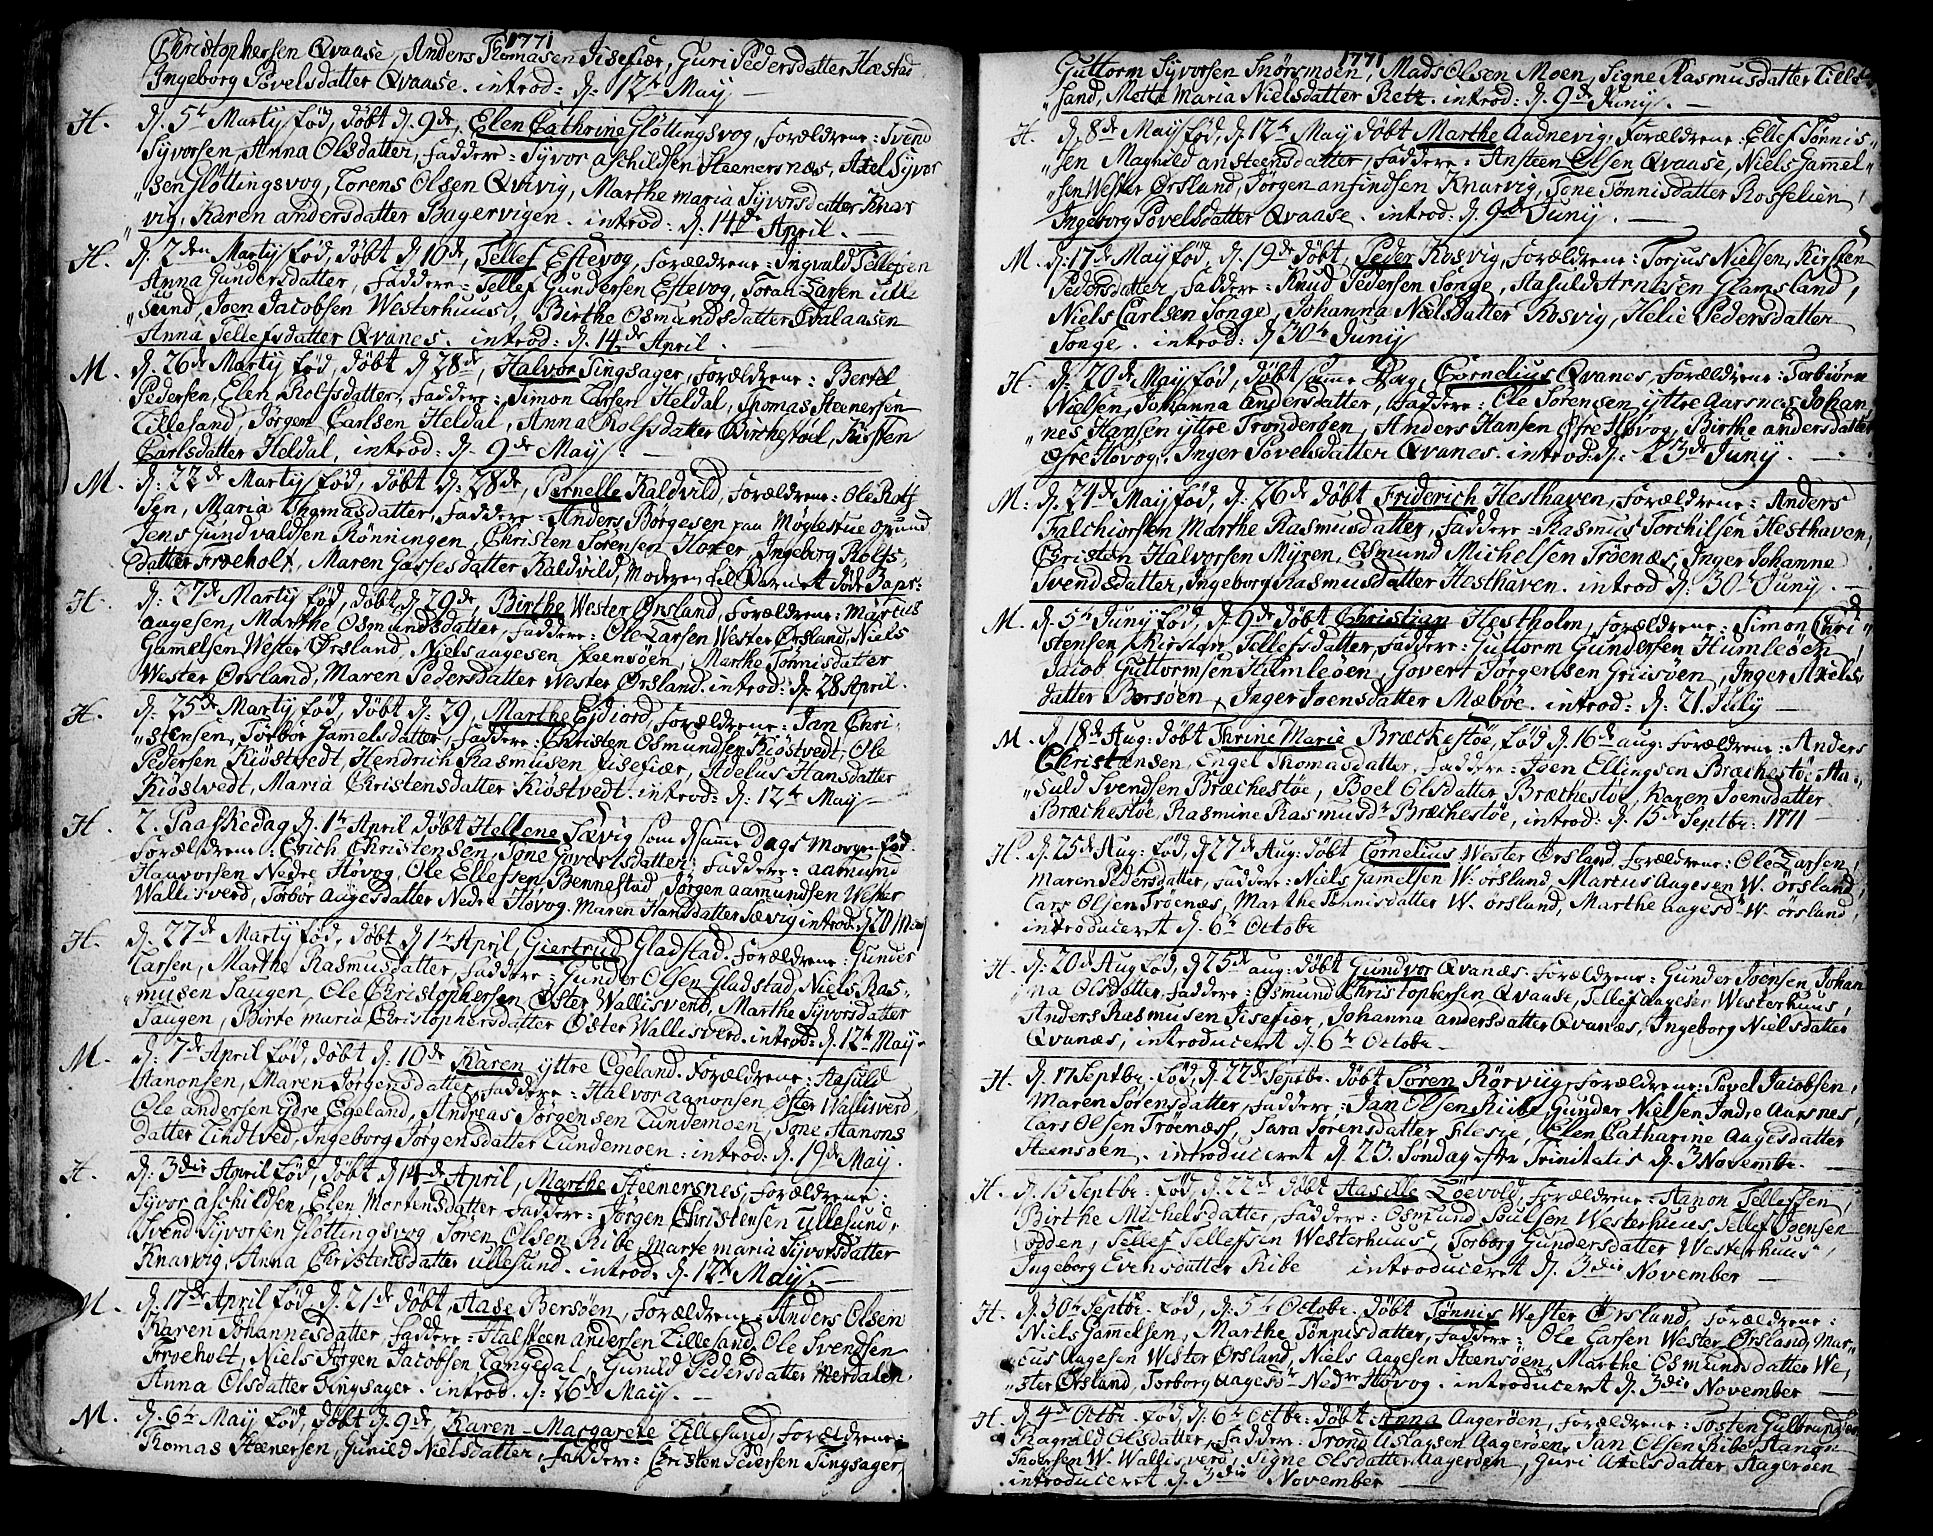 1771
Christophersen Qvaase, Anders Thomasen Isefiær, Guri Pedersdatter Hæstad
Ingeborg Povelsdatter Qvaase. introd: d: 12te May
H. d. 5te Martij fød, døbt d. 9de, Elen Cathrine Gløttingsvog, Forældrene: Svend
Syvorsen, Anna Olsdatter, Faddere: Syvor aschildsen Steenersnæs, Axel Syvor
sen Gløttingsvog, Torens Olsen Qvivig, Marthe maria Syvorsdatter Knar
vig, Karen andersdatter Bagervigen. introd: d: 14de April.
H. d. 2den Martij fød, døbt d. 10de, Tellef Estevog, Forældrene: Ingvald Tellefsen
Anna Gundersdatter, Faddere: Tellef Gundersen Estevog, Toran Larsen ulle
sund, Joen Jacobsen Westerhuus, Birthe Osmundsdatter Qvalaasen
Anna Tellefsdatter Qvanes. introd: d: 14de April.
M. d. 26de Martij fød, døbt d 28de, Halvor Tingsager, Forældrene: Bertel
Pedersen, Elen Rolfsdatter, Faddere: Simon Larsen Heldal, Thomas Steenersen
Lillesand, Jørgen Carlsen Heldal, Anna Rolfsdatter Birkestøel, Kirsten
Carlsdatter Heldal, introd: d. 9de May.
M. d: 22de Martij fød, døbt d: 28de, Pernelle Kaldvild, Forældrene: Ole Rolf
sen, Maria Thomasdatter, Faddere: Anders Børgesen paa Møglestue grund
Jens Gundvaldsen Rønningen, Christen Sørensen Hoxer, Ingeborg Rolfs
datter Froeholt, Maren Gassesdatter Kaldvild, Moderen til Barnet døde Baps:
H. d: 27de Martij fød, døbt d 29de, Birthe Wester Ørsland, Forældrene: Marcus
aagesen, Marthe Osmundsdatter, Faddere: Ole Larsen Wester Ørsland, Niels
Gamelsen Wester Ørsland, Niels aagesen Steensøen, Marthe Tønnisdatter
Wester Ørsland, Maren Pedersdatter Wester Ørsland. introd: d: 28 April.
H. d: 25de Martij fød, døbt d: 29, Marthe Eidiord, Forældrene: Jan Chri
stensen, Torbør Gamelsdatter, Faddere: Christen Osmundsen Kiøstvedt, Ole
Pedersen Kiøstvedt, Hendrich Rasmusen Isefiær, Adelus Hansdatter
Kiøstvedt, Maria Christensdatter Kiøstvedt. introd: d: 12te May
H. 2. Paaskedag d. 1te April døbt Hellene Sævig som samme Dags Morgen fød.
Forældrene: Erich Christensen, Tone Govertsdatter, Faddere: aamund
Haavorsen Nedre Høvog, Ole Ellefsen Bennestad, Jørgen aamundsen Wester
Wallisverd, Torbør Aagesdatter Nedre Høvog. Maren Hansdatter Sævig introd: d 20 May
H. d: 27de Martij fød, døbt d 1te April, Giertrud Gladstad. Forældrene: Gunder
Larsen, Marthe Rasmusdatter, Faddere: Gunder Olsen Gladstad, Niels Ras
musen Saugen, Ole Christophersen Øster Wallisverd, Marthe Syvorsdatter
Saugen, Birte maria Christophersdatter Øster Wallisverd. introd: d. 12te May
M. d: 7de April fød, døbt d. 10de Karen yttre Egeland. Forældrene: Aasuld
Aanonsen, Maren Jørgensdatter, Faddere: Halvor Aanonsen Øster Wallisverd,
Ole andersen ydre Egeland, Andreas Jørgensen Lundemoen, Tone Aanons
datter Lindtved, Ingeborg Jørgensdatter Lundemoen: introd: d. 19de May.
H. d: 3die April fød, døbt d 14de April, Marthe Steenersnes, Forældrene:
Syvor aschildsen, Elen Mortensdatter, Faddere: Jørgen Christensen ullesund,
Svend Syvorsen Gløttingsvog, Søren Olsen Ribe, Marte maria Syvorsdatter
Knarvig, Anna Christensdatter ullesund. introd: d: 12te May.
M. d. 17de April fød, d. 21de døbt, Aase Bersøen, Forældrene: Anders Olsen
Karen Johannesdatter, Faddere: Halsteen andersen Lillesand, Ole Svendsen
Froeholt, Niels Jørgen Jacobsen Langedal, Gunild Pedersdatter Merdalen,
Anna Olsdatter Tingsager. introd. d: 26de May.
M. d. 6te May fød, døbt d. 9de, Karen-Margarete Lillesand, Forældrene:
Thomas Steenersen, Gunild Nielsdatter, Faddere: Christen Pedersen Tingsager
1771
Guttorm Syvorsen Snørsmoen, Mads Olsen Moen, Signe Rasmusdatter Lille
sand, Mette Maria Nielsdatter Retz. introd: d: 9de Junij.
H. d. 8de May fød, d. 12te May døbt Marthe Aadnevig, Forældrene: Ellef Tønnis
sen Magnild ansteensdatter, Faddere: Ansteen Elsen Qvaase, Niels Gamel
sen Wester Ørsland, Jørgen anfindsen Knarvig, Tone Tønnisdatter Rosselien,
Ingeborg Povelsdatter Qvaase. introd: d: 9de Junij.
M. d: 17de May fød, d. 19de døbt, Peder Kosvig, Forældrene: Torjus Nielsen, Kirsten
Pedersdatter, Faddere: Knud Pedersen Songe, Aasuld Arntsen Glamsland,
Niels Carlsen Songe, Johanna Nielsdatter Kosvig, Helie Pedersdatter
Songe. introd: d 30te Junij
H. d: 20de May fød, døbt samme Dag, Cornelius Qvanes, Forældrene: Torbiørn
Nielsen, Johanna andersdatter, Faddere: Ole Sørensen yttre Aarsnes, Johan
nes Hansen yttre Trønderøen, Anders Hansen Øfre Høvog, Birthe andersdatter
Øfre Høvog, Inger Povelsdatter Qvanes. introd: d: 23de Junij.
M: d: 21de May fød, d: 26de døbt Friderich Hesthaven, Forældrene: Anders
Falchiorsten Marthe Rasmusdatter, Faddere: Rasmus Torchilsen Hesthaven,
Christen Halvorsen Myren, Osmund Michelsen Trøenæs, Inger Johanne
Svendsdatter, Ingeborg Rasmusdatter Hesthaven. introd d: 30te Junij.
M. d. 5te Junij fød, d. 9de døbt Christian Hestholm, Forældrene: Simon Chri
stensen, Christen Tellefsdatter, Faddere: Guttorm Gundersen Humleøen,
Jacob Guttormsen Humleøen, Govert Jørgensen Griisøen, Inger Axels
datter Bersøen, Inger Joensdatter Mæbøe. introd: d: 21. Julij
M. d. 18de Aug: døbt Thrine Marie Bræckestøe, fød d. 16de aug: Forældrene: Anders
Christensen, Engel Thomasdatter, Faddere: Joen Ellingsen Bræchestøe, Aa
suld Svendsen Bræchestøe, Boel Olsdatter Bræchestøe, Karen Joensdatter
Bræchestøe, Rasmine Rasmusdr Bræchestøe, introd: d. 15de Septbr: 1771
H. d. 25de Aug: fød, d 27de Aug: døbt Cornelius Wester Ørsland, Forældrene: Ole Larsen,
Maren Pedersdatter, Faddere: Niels Gamelsen W. ørsland, Marcus Aagesen W. Ørsland,
Lars Olsen Trøenæs, Marthe Tønnisdatter W. ørsland, Marthe aagesdr W. ørsland,
introduceret d. 6te Octobr
H. d: 20de Aug fød, d 25de aug: døbt Gundvor Qvanæs. Forældrene: Gunder Joensen, Johan
na Olsdatter, Faddere: Osmund Christophersen Qvaase, Tellef aagesen Westerhuus,
Anders Rasmusen Isefiær, Johanna andersdatter Qvanæs, Ingeborg Nielsdatter
Qvanæs, introduceret d. 6te Octobr.
H. d. 17 Septbr. fød, d. 22de Septbr. døbt Søren Rørviig, Forældrene: Povel Jacobsen,
Maren Sørensdatter, Faddere: Jan Olsen Riibe, Gunder Nielsen Indre Aarsnes,
Lars Olsen Trøenæss, Sara Sørensdatter Alesie, Elen Catharine Aagesdatter
Steensøen. introduceret d. 23. Søndag efter Trinitatis d. 3 Novembr.
H. d. 15 Septbr. fød, d. 22de døbt Aasille Løevold, Forældrene: Aanon Tellefsen,
Birthe Michelsdatter, Faddere: Osmund Poulsen Westerhuus, Tellef Joensen
odden, Tellef Tellefsen Westerhuus, Torborg Gundersdatter Westerhuus,
Ingeborg Evensdatter Ribe introduceret d. 3die November
H. d. 30te Septbr. fød, d. 5te Octobr. døbt Tønnis Wester Ørsland, Forældrene:
Niels Gamelsen, Marthe Tønnisdatter, Faddere: Ole Larsen Wester Ørsland, Mar
cus Aagesen Wester Ørsland, Niels Aagesen Steensøen, Marthe Osmundsdatter We
ster Ørsland, Torborg aagesdr Nedre Høvog. introduceret d. 3die November
H. d. 4de Octbr. fød, d. 6te Octbr: døbt Anna Aagerøen, Forældrene: Tosten Gulbrandsen
Ragnild Olsdatter, Faddere: Trond Aslagsen Aagerøen, Jan Olsen Ribe, Aanon
Thorsen W. Wallisverd, Signe Olsdatter Aagerøen, Guri Axelsdatter Aagerøen
introduceret d. 3die November